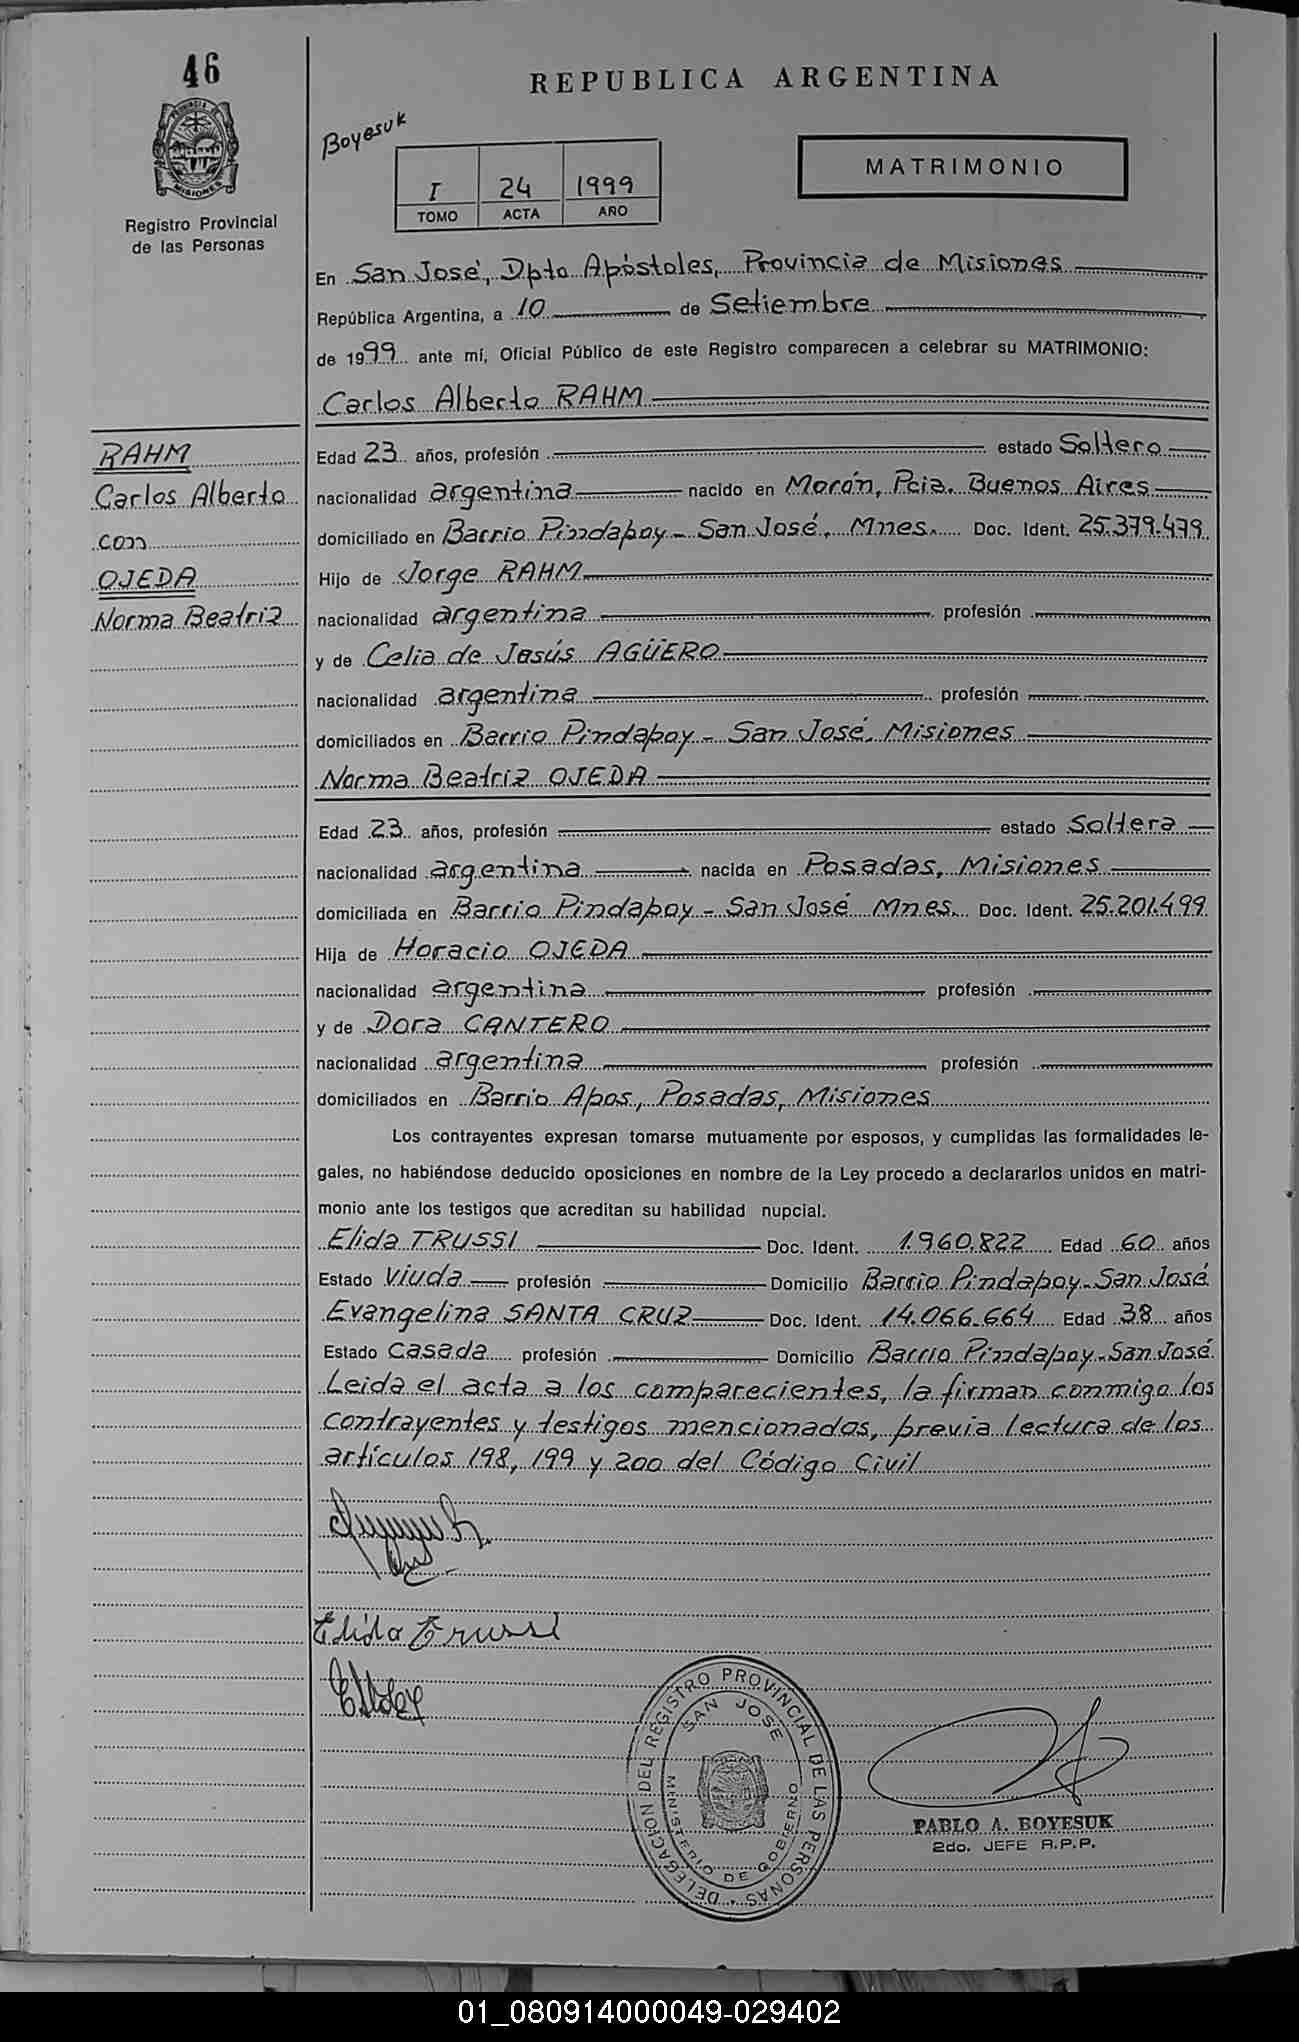 46
REPUBLICA ARGENTINA
Boyesuk
PROVINCIA DE
MISIONES
I 24 1999
TOMO ACTA AÑO
MATRIMONIO
Registro Provincial
de las Personas
En San José, Dpto Apóstoles, Provincia de Misiones
República Argentina, a 10 de Setiembre
de 1999 ante mí, Oficial Público de este Registro comparecen a celebrar su MATRIMONIO:
Carlos Alberto RAHM
RAHM
Carlos Alberto
con
OJEDA
Norma Beatriz
Edad 23 años, profesión estado Soltero
nacionalidad argentina nacido en Morón, Pcia. Buenos Aires
domiciliado en Barrio Pindapoy - San José, Mnes. Doc. Ident. 25.379.479
Hijo de Jorge RAHM
nacionalidad argentina profesión
y de Celia de Jesús AGÜERO
nacionalidad argentina profesión
domiciliados en Barrio Pindapoy - San José, Misiones
Norma Beatriz OJEDA
Edad 23 años, profesión estado Soltera
nacionalidad argentina nacida en Posadas, Misiones
domiciliada en Barrio Pindapoy - San José Mnes. Doc. Ident. 25.201.499
Hija de Horacio OJEDA
nacionalidad argentina profesión
y de Dora CANTERO
nacionalidad argentina profesión
domiciliados en Barrio Apos, Posadas, Misiones
Los contrayentes expresan tomarse mutuamente por esposos, y cumplidas las formalidades le-
gales, no habiéndose deducido oposiciones en nombre de la Ley procedo a declararlos unidos en matri-
monio ante los testigos que acreditan su habilidad nupcial.
Elida TRUSSI Doc. Ident. 1.960.822 Edad 60 años
Estado Viuda profesión Domicilio Barrio Pindapoy - San José
Evangelina SANTA CRUZ Doc. Ident. 14.066.664 Edad 38 años
Estado Casada profesión Domicilio Barrio Pindapoy - San José
Leida el acta a los comparecientes, la firman conmigo los
contrayentes y testigos mencionados, previa lectura de los
artículos 198, 199 y 200 del Código Civil
Elida Trussi
DELEGACION DEL REGISTRO PROVINCIAL DE LAS PERSONAS
SAN JOSE
MINISTERIO DE GOBIERNO
PABLO A. BOYESUK
2do. JEFE R.P.P.
01_080914000049-029402